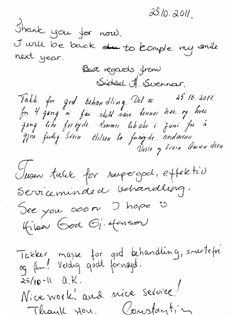 25.10.2011.
Thank you for now.
I will be back to comple my smile
next year.
Best regards from
Sidsel A. Svennar.
Takk for god behandling. Det er 25.10.2011
for 4 gang vi får skill nåie tenner her, og hver
gang like fornøyd. Kommer tilbake i Juni for å
gjøre ferdig
Tusen takk for supergod, effektiv
serviceminded behandling.
See you soon I hope ☺
Hilsen
Takker masse for god behandling, smertefri
og fin! Veldig godt fornøyd.
25/10-11 A.K.
Nice work! and nice service!
Thank you. Constantin